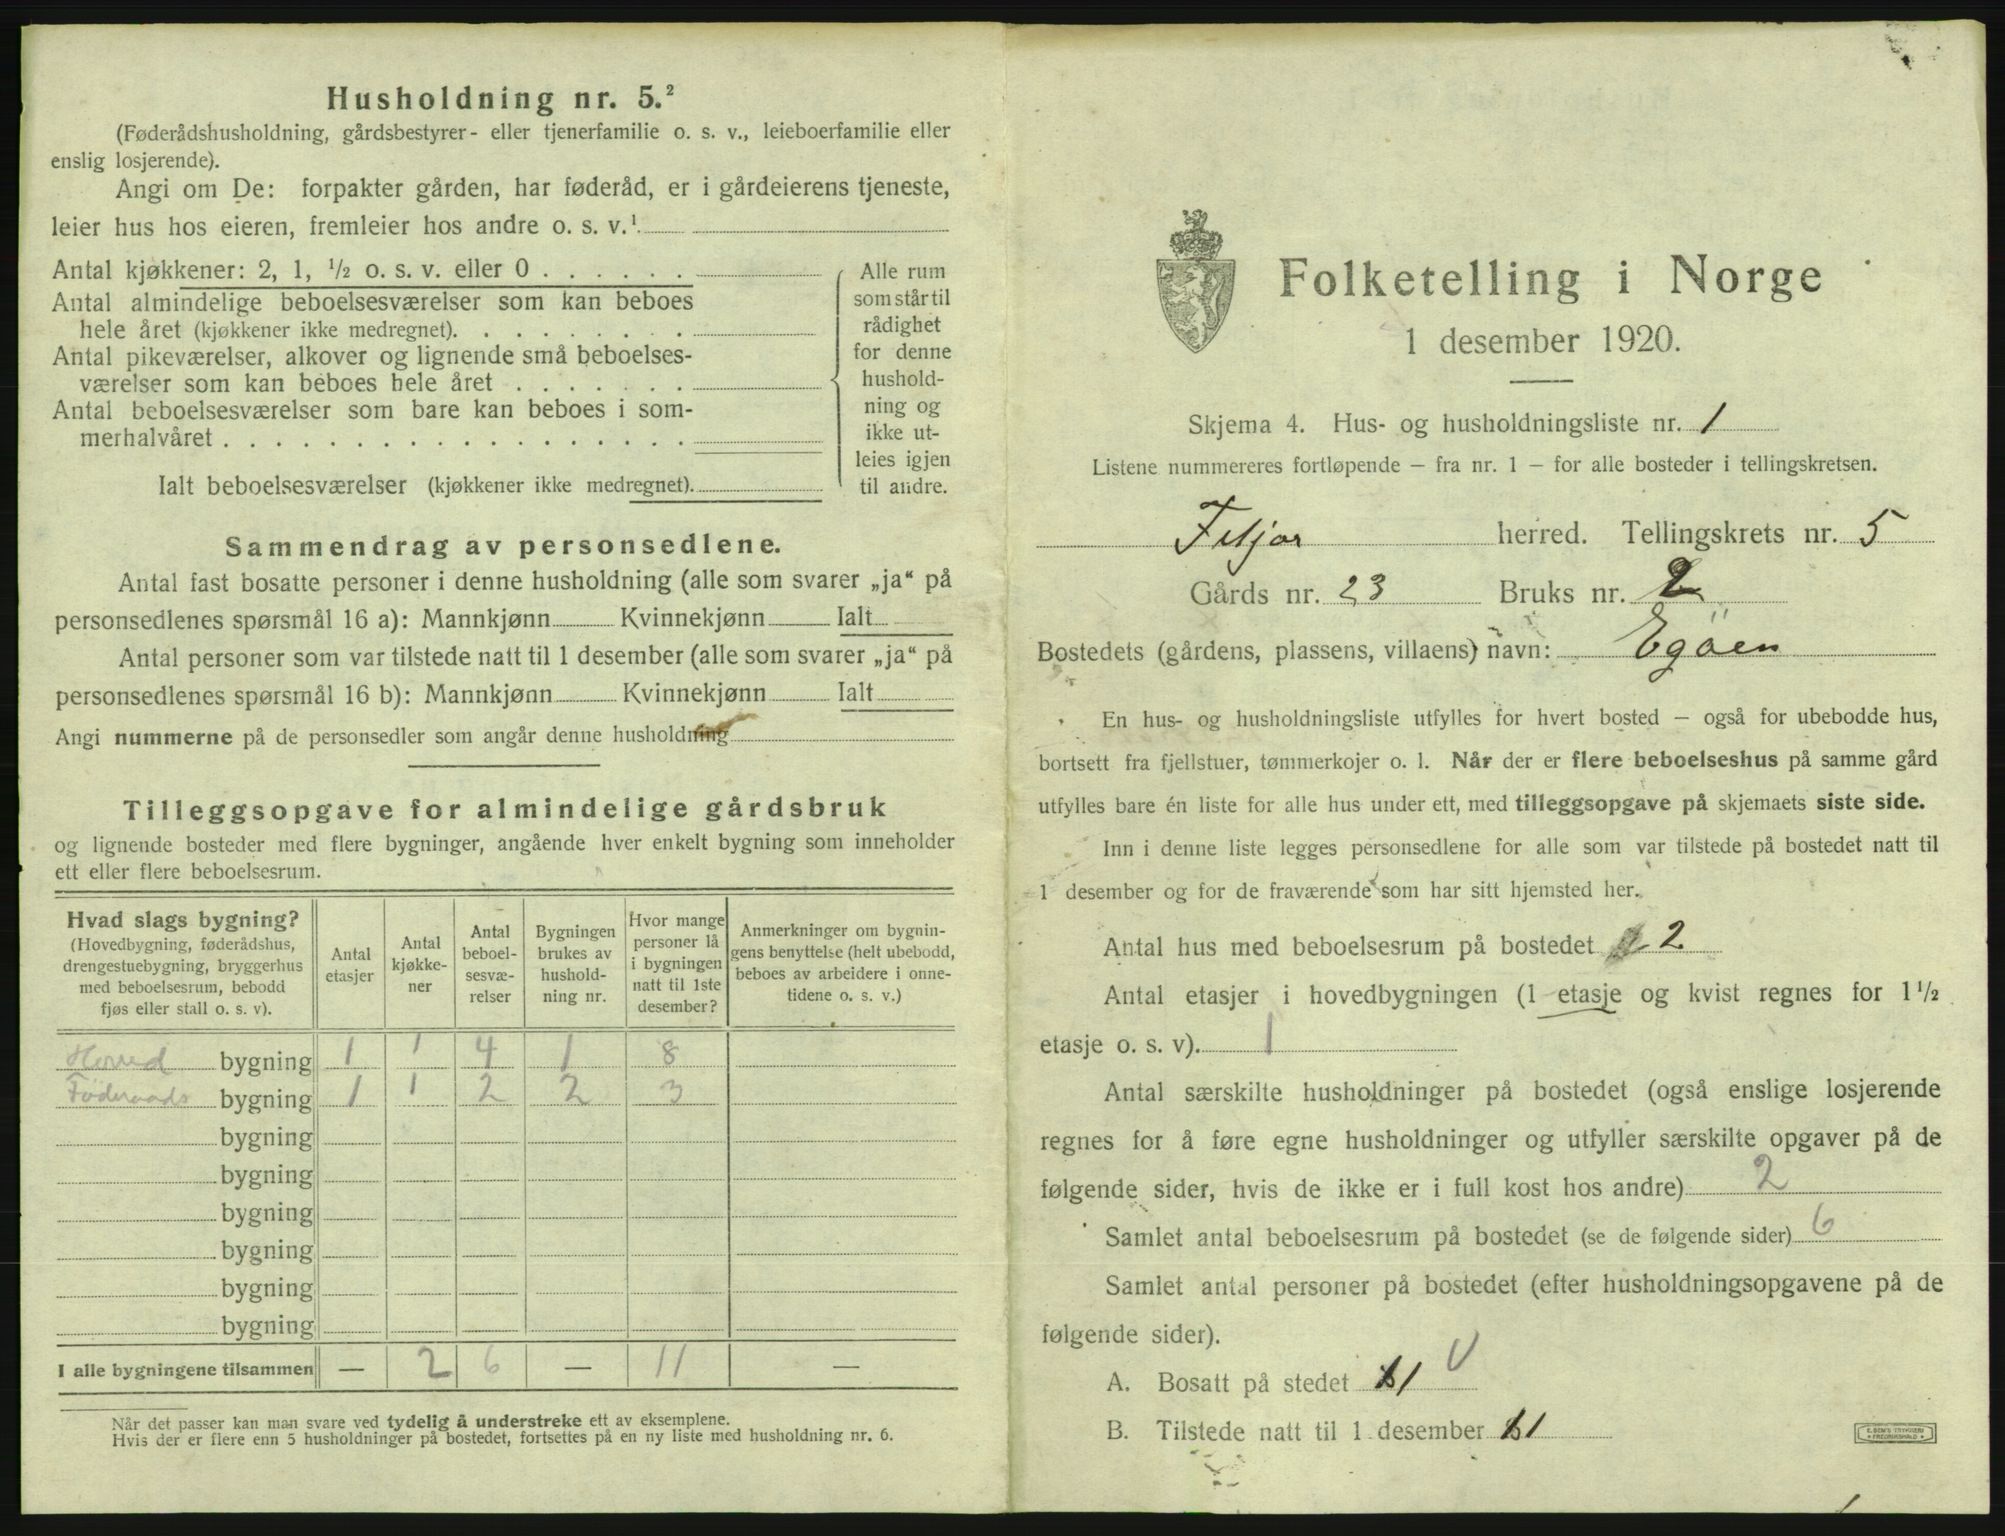 Husholdning nr. 5.²
(Føderådshusholdning, gårdsbestyrer- eller tjenerfamilie o. s. v., leieboerfamilie eller
enslig losjerende).
Angi om De: forpakter gården, har føderåd, er i gårdeierens tjeneste,
leier hus hos eieren, fremleier hos andre o. s. v.¹
Antal kjøkkener: 2, 1, ½ o. s. v. eller 0 . . . . . .
Antal almindelige beboelsesværelser som kan beboes
hele året (kjøkkener ikke medregnet). . . . . . . . .
Antal pikeværelser, alkover og lignende små beboelses-
værelser som kan beboes hele året . . . . . . .
Antal beboelsesværelser som bare kan beboes i som-
merhalvåret . . . . . . . . . . . . . . . . . .
Ialt beboelsesværelser (kjøkkener ikke medregnet).
Alle rum
som står til
rådighet
for denne
hushold-
ning og
ikke ut-
leies igjen
til andre.
Sammendrag av personsedlene.
Antal fast bosatte personer i denne husholdning (alle som svarer „ja“ på
personsedlenes spørsmål 16 a): Mannkjønn Kvinnekjønn Ialt
Antal personer som var tilstede natt til 1 desember (alle som svarer „ja“ på
personsedlenes spørsmål 16 b): Mannkjønn Kvinnekjønn Ialt
Angi nummerne på de personsedler som angår denne husholdning
Tilleggsopgave for almindelige gårdsbruk
og lignende bosteder med flere bygninger, angående hver enkelt bygning som inneholder
ett eller flere beboelsesrum.
Hvad slags bygning?
(Hovedbygning, føderådshus,
drengestuebygning, bryggerhus
med beboelsesrum, bebodd
fjøs eller stall o. s. v).
Antal
etasjer
Antal
kjøkke-
ner
Antal
beboel-
sesvæ-
relser
Bygningen
brukes av
hushold-
ning nr.
Hvor mange
personer lå
i bygningen
natt til 1ste
desember?
Anmerkninger om bygnin-
gens benyttelse (helt ubebodd,
beboes av arbeidere i onne-
tidene o. s. v.)
Hoved bygning 1 1 4 1 8
Föderaads bygning 1 1 2 2 3
bygning
bygning
bygning
bygning
bygning
bygning
I alle bygningene tilsammen — 2 6 — 11 —
Når det passer kan man svare ved tydelig å understreke ett av eksemplene.
Hvis der er flere enn 5 husholdninger på bostedet, fortsettes på en ny liste med husholdning nr. 6.
Folketelling i Norge
1 desember 1920.
Skjema 4. Hus- og husholdningsliste nr. 1
Listene nummereres fortløpende – fra nr. 1 – for alle bosteder i tellingskretsen.
Fitjar herred. Tellingskrets nr. 5
Gårds nr. 23 Bruks nr. 2
Bostedets (gårdens, plassens, villaens) navn: Egöen
En hus- og husholdningsliste utfylles for hvert bosted – også for ubebodde hus,
bortsett fra fjellstuer, tømmerkojer o. l. Når der er flere beboelseshus på samme gård
utfylles bare én liste for alle hus under ett, med tilleggsopgave på skjemaets siste side.
Inn i denne liste legges personsedlene for alle som var tilstede på bostedet natt til
1 desember og for de fraværende som har sitt hjemsted her.
Antal hus med beboelsesrum på bostedet 2
Antal etasjer i hovedbygningen (1 etasje og kvist regnes for 1½
etasje o. s. v). 1
Antal særskilte husholdninger på bostedet (også enslige losjerende
regnes for å føre egne husholdninger og utfyller særskilte opgaver på de
følgende sider, hvis de ikke er i full kost hos andre) 2
Samlet antal beboelsesrum på bostedet (se de følgende sider) 6
Samlet antal personer på bostedet (efter husholdningsopgavene på de
følgende sider).
A. Bosatt på stedet 11
B. Tilstede natt til 1 desember 11
E. SEM'S TRYKKERI
FREDRIKSHALD